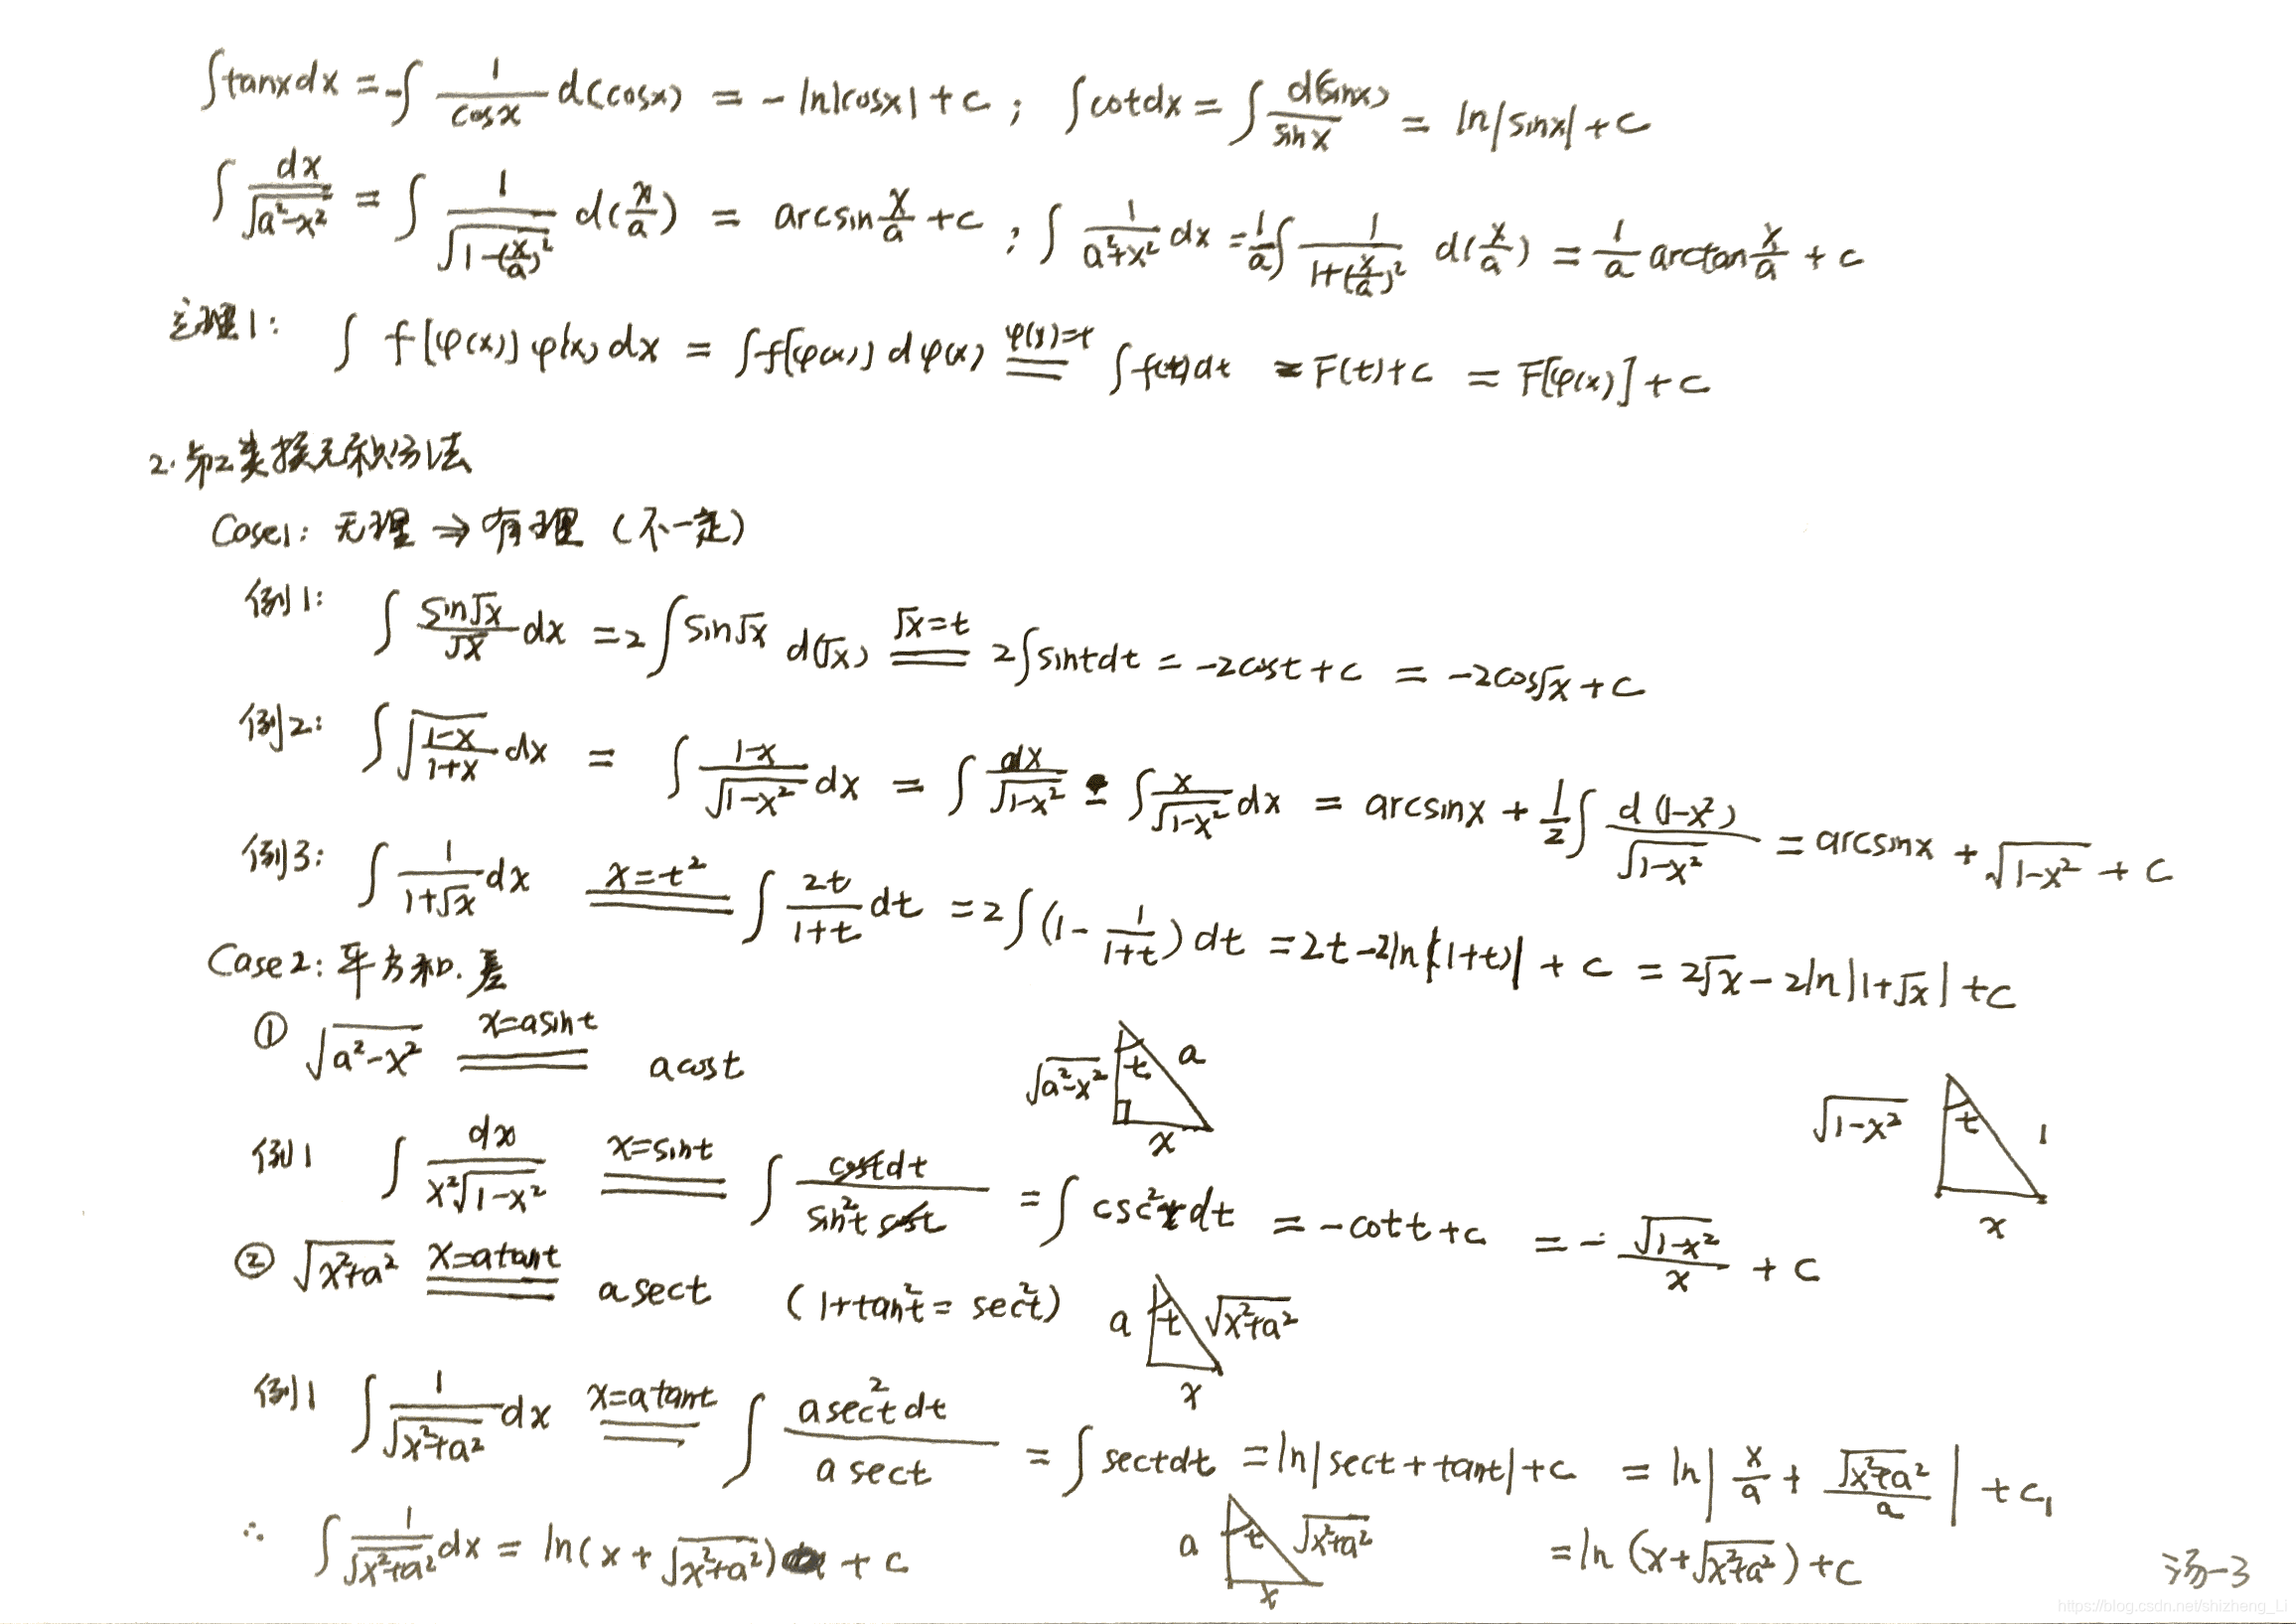 ∫tanxdx = -∫ 1/cosx d(cosx) = -ln|cosx| + c ; ∫cotdx = ∫ d(sinx)/sinx = ln|sinx| + c
∫ dx/√(a²-x²) = ∫ 1/√(1-(x/a)²) d(x/a) = arcsin x/a + c ; ∫ 1/(a²+x²) dx = 1/a ∫ 1/(1+(x/a)²) d(x/a) = 1/a arctan x/a + c
定理1: ∫ f[φ(x)] φ'(x) dx = ∫f[φ(x)] dφ(x) ==(φ(x)=t)== ∫f(t)dt = F(t)+c = F[φ(x)] + c
2. 第2类换元积分法
Case1: 无理 ⇒ 有理 (不一定)
例1: ∫ sin√x/√x dx = 2∫sin√x d(√x) ==(√x=t)== 2∫sintdt = -2cost + c = -2cos√x + c
例2: ∫ √((1-x)/(1+x)) dx = ∫ (1-x)/√(1-x²) dx = ∫ dx/√(1-x²) - ∫ x/√(1-x²) dx = arcsinx + 1/2 ∫ d(1-x²)/√(1-x²) = arcsinx + √(1-x²) + c
例3: ∫ 1/(1+√x) dx ==(x=t²)== ∫ 2t/(1+t) dt = 2∫(1 - 1/(1+t)) dt = 2t-2ln|(1+t)| + c = 2√x - 2ln|1+√x| + c
Case2: 平方和.差
① √(a²-x²) ==(x=asint)== acost √(a²-x²) t a x
例1 ∫ dx/(x²√(1-x²)) ==(x=sint)== ∫ costdt/(sin²t cost) = ∫csc²tdt = -cott+c = - √(1-x²)/x + c √(1-x²) t 1 x
② √(x²+a²) ==(x=atant)== asect (1+tan²t = sec²t) a t √(x²+a²) x
例1 ∫ 1/√(x²+a²) dx ==(x=atant)== ∫ asec²tdt/(asect) = ∫sectdt = ln|sect+tant|+c = ln| x/a + √(x²+a²)/a | + c₁
∴ ∫ 1/√(x²+a²) dx = ln(x+√(x²+a²)) + c a t √(x²+a²) x = ln(x+√(x²+a²))+c
汤-3
https://blog.csdn.net/shizheng_Li